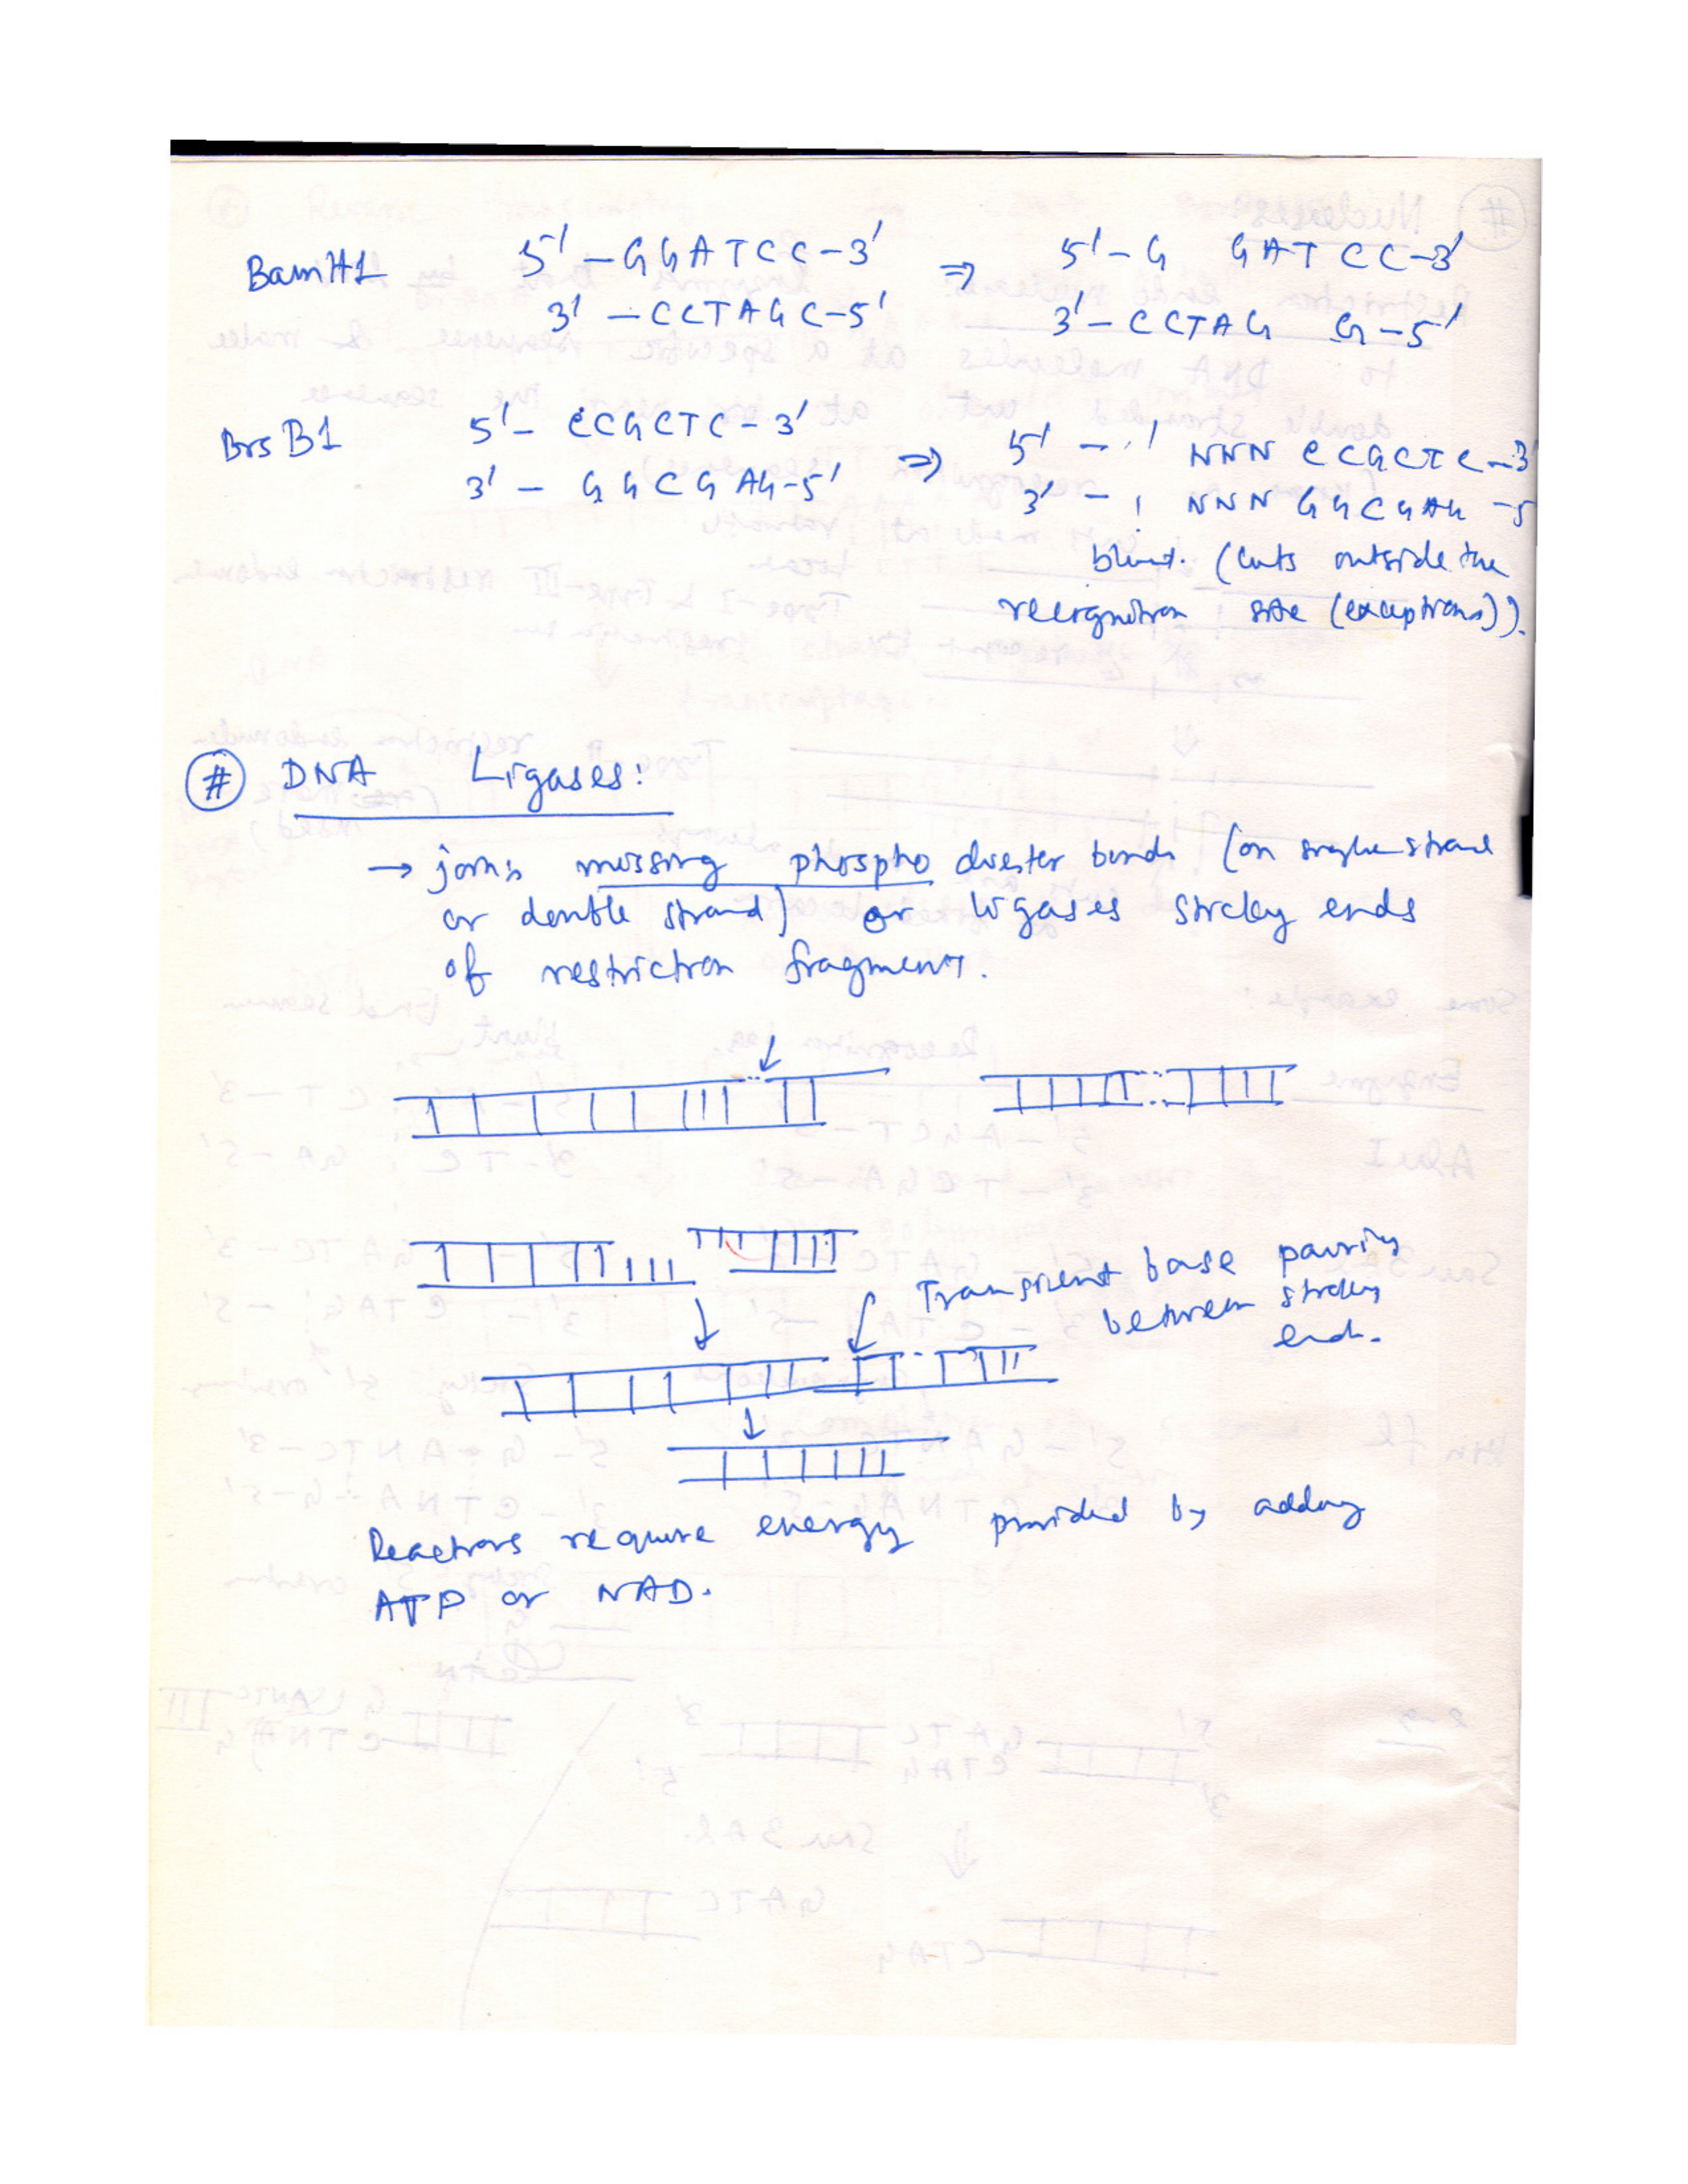 BamH1 5' - GGATCC-3' ⇒ 5'-G GATCC-3'
3' - CCTAGC-5' 3'- CCTAG G-5'
BrsB1 5'- CCGCTC-3' ⇒ 5' - ' NNN CCGCTC-3'
3' - GGCGAG-5' 3' - ' NNN GGCGAG -5
blunt. (Cuts outside the
recognition site (exceptions)).
# DNA Ligases:
→ joins missing phospho diester bonds (on single strand
or double strand) or ligases sticky ends
of restriction fragment.
Transient base pairing
between sticky
end.
Reactions require energy provided by adding
ATP or NAD.